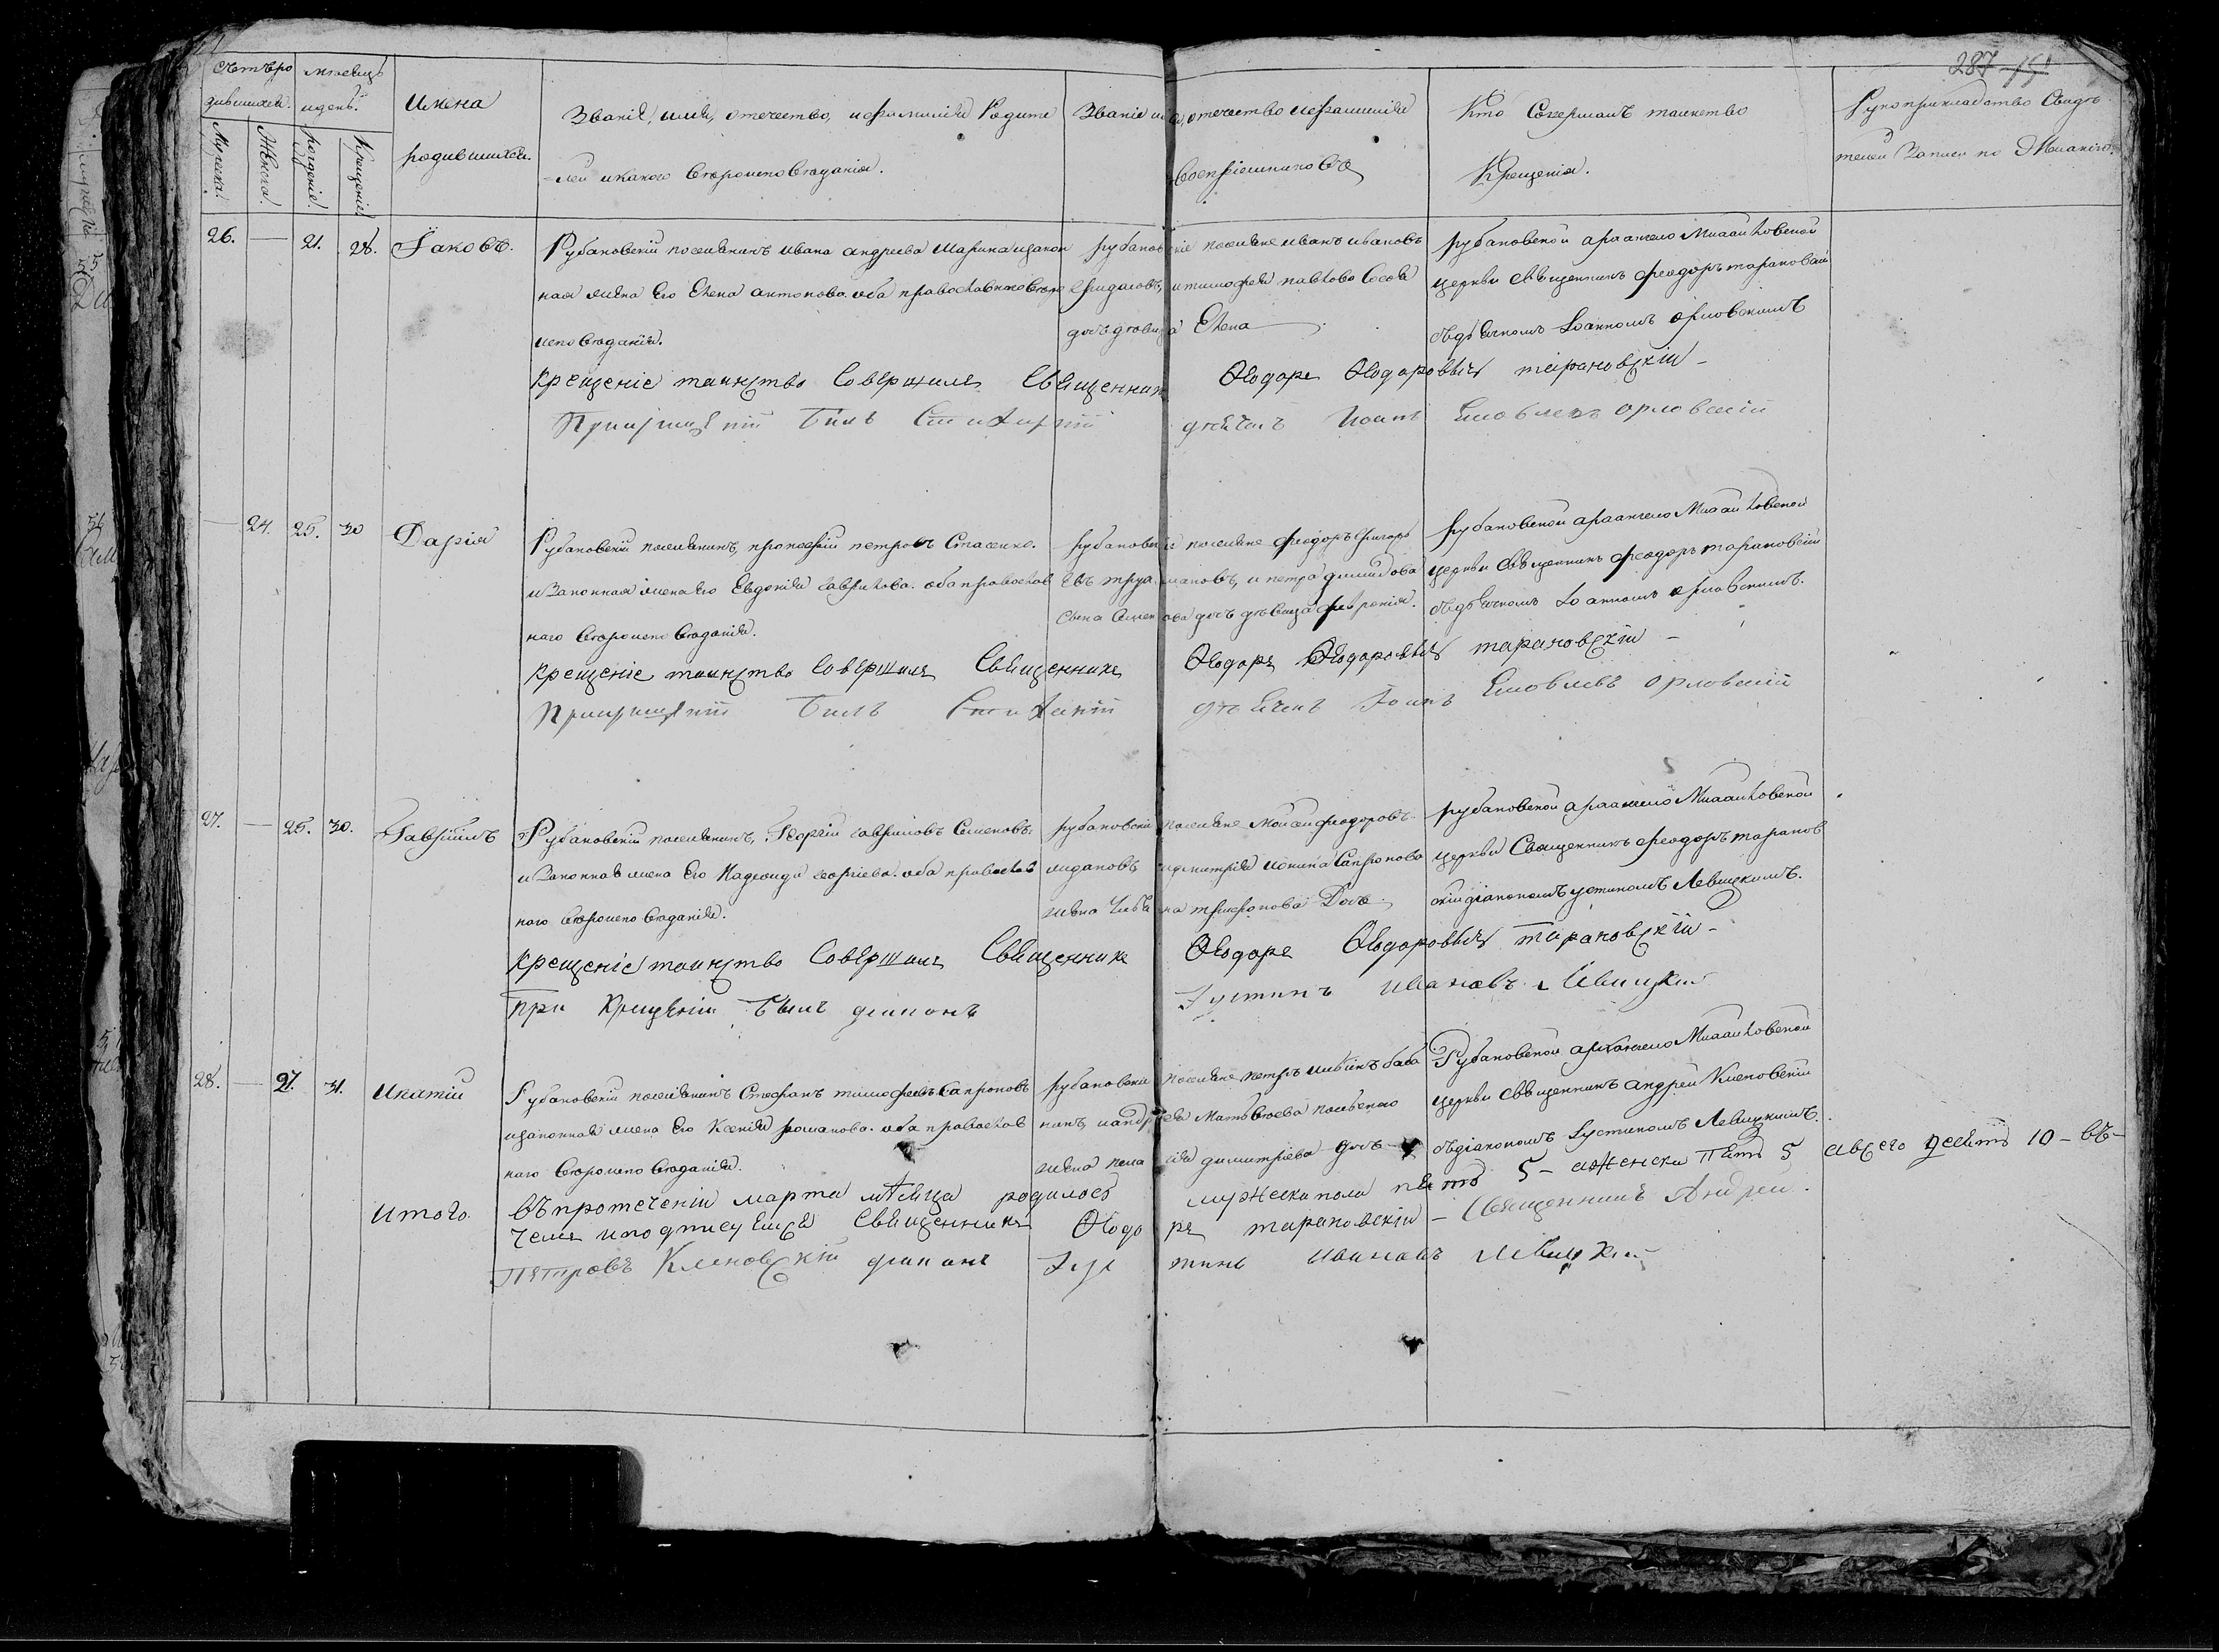 287
Счетъ ро
дившихся.
Мужеска.
Женска.
Мѣсяцъ
и день.
Рожденіе.
Крещеніе.
Имена
родившихся.
Званіе, имя, отечество, и фамилія Родите
-лей и какого вѣроисповѣданія.
Званіе имя, отечество и фамилія
воспріемниковъ
Кто Совершалъ таинство
Крещенія.
Рукоприкладство Свидѣ
телей Записи по Желанію.
26. — 21. 28. Іаковъ.
Рубановскій поселянинъ Ивана Андреева Шарина и закон
ная жена Его Елена Антонова. оба православнаго вѣро
исповѣданія.
рубановскіе поселяне иванъ ивановъ
и тимофея павлова Сосова
дочь дѣвица Елена
рубановской архангело Михайловской
церкви священникъ феодоръ тарановскій
съ дьячкомъ Іоанномъ орловскимъ
Крещеніе таинство Совершилъ Священникъ Ѳеодоръ Ѳеодоровичъ тарановскій –
дьячекъ Иоанъ Ековлевъ орловскій
— 24. 25. 30 Дарія
Рубановскій поселянинъ, прокофій петровъ Стасенко.
и Законная жена Его Евдокія гаврилова. оба православ
наго вѣроисповѣданія.
рубановскіе поселяне феодоръ григорь
евъ трухмановъ, и петра демидова
сына Семенова дочь дѣвица февронія.
рубановской архангело Михайловской
церкви священникъ феодоръ тарановскій
съ дьячкомъ Іоанномъ орловскимъ.
Крещеніе таинство Совершилъ Священникъ Ѳеодоръ Ѳеодоровичъ тарановскій –
дьячекъ Іоанъ Ековлевъ орловскій
27. — 25. 30. Гавріилъ
Рубановскій поселянинъ, Георгій гавриловъ Семеновъ.
и Законная жена Его Надежда георгіева. оба православ
наго вѣроисповѣданія.
рубановскіе поселяне Моисей феодоровъ
лидановъ и димитрія ионина Сапронова
жена трифонова Дочь.
рубановской архангело Михайловской
церкви Священникъ феодоръ таранов
скій діакономъ устиномъ Левицкимъ.
Крещеніе таинство Совершилъ Священникъ Ѳеодоръ Ѳеодоровичъ тарановскій –
При Крещеніи былъ діаконъ Іустинъ Ивановъ Левицкій
28. — 27. 31. Ипатій
Рубановскій поселянинъ Стефанъ тимофеевъ Сапроновъ
и законная жена Его Ксенія романова. оба православ
наго вѣроисповѣданія.
рубановскіе поселяне петръ
и андрея Матвѣева
жена димитріева дочь
Рубановской архангело Михайловской
церкви священникъ андрей Кленовскій
съ діакономъ Іустиномъ Левицкимъ.
Итого. Въ протеченіи марта мѣсяца родилось мужеска пола пять 5 – а женска Пять 5 а всего десять 10 – въ
чемъ и подписуемся Священникъ Ѳеодоръ тарановскій – Священникъ Андрей
Петровъ Кленовскій діаконъ Іустинъ Ивановъ Левицкій